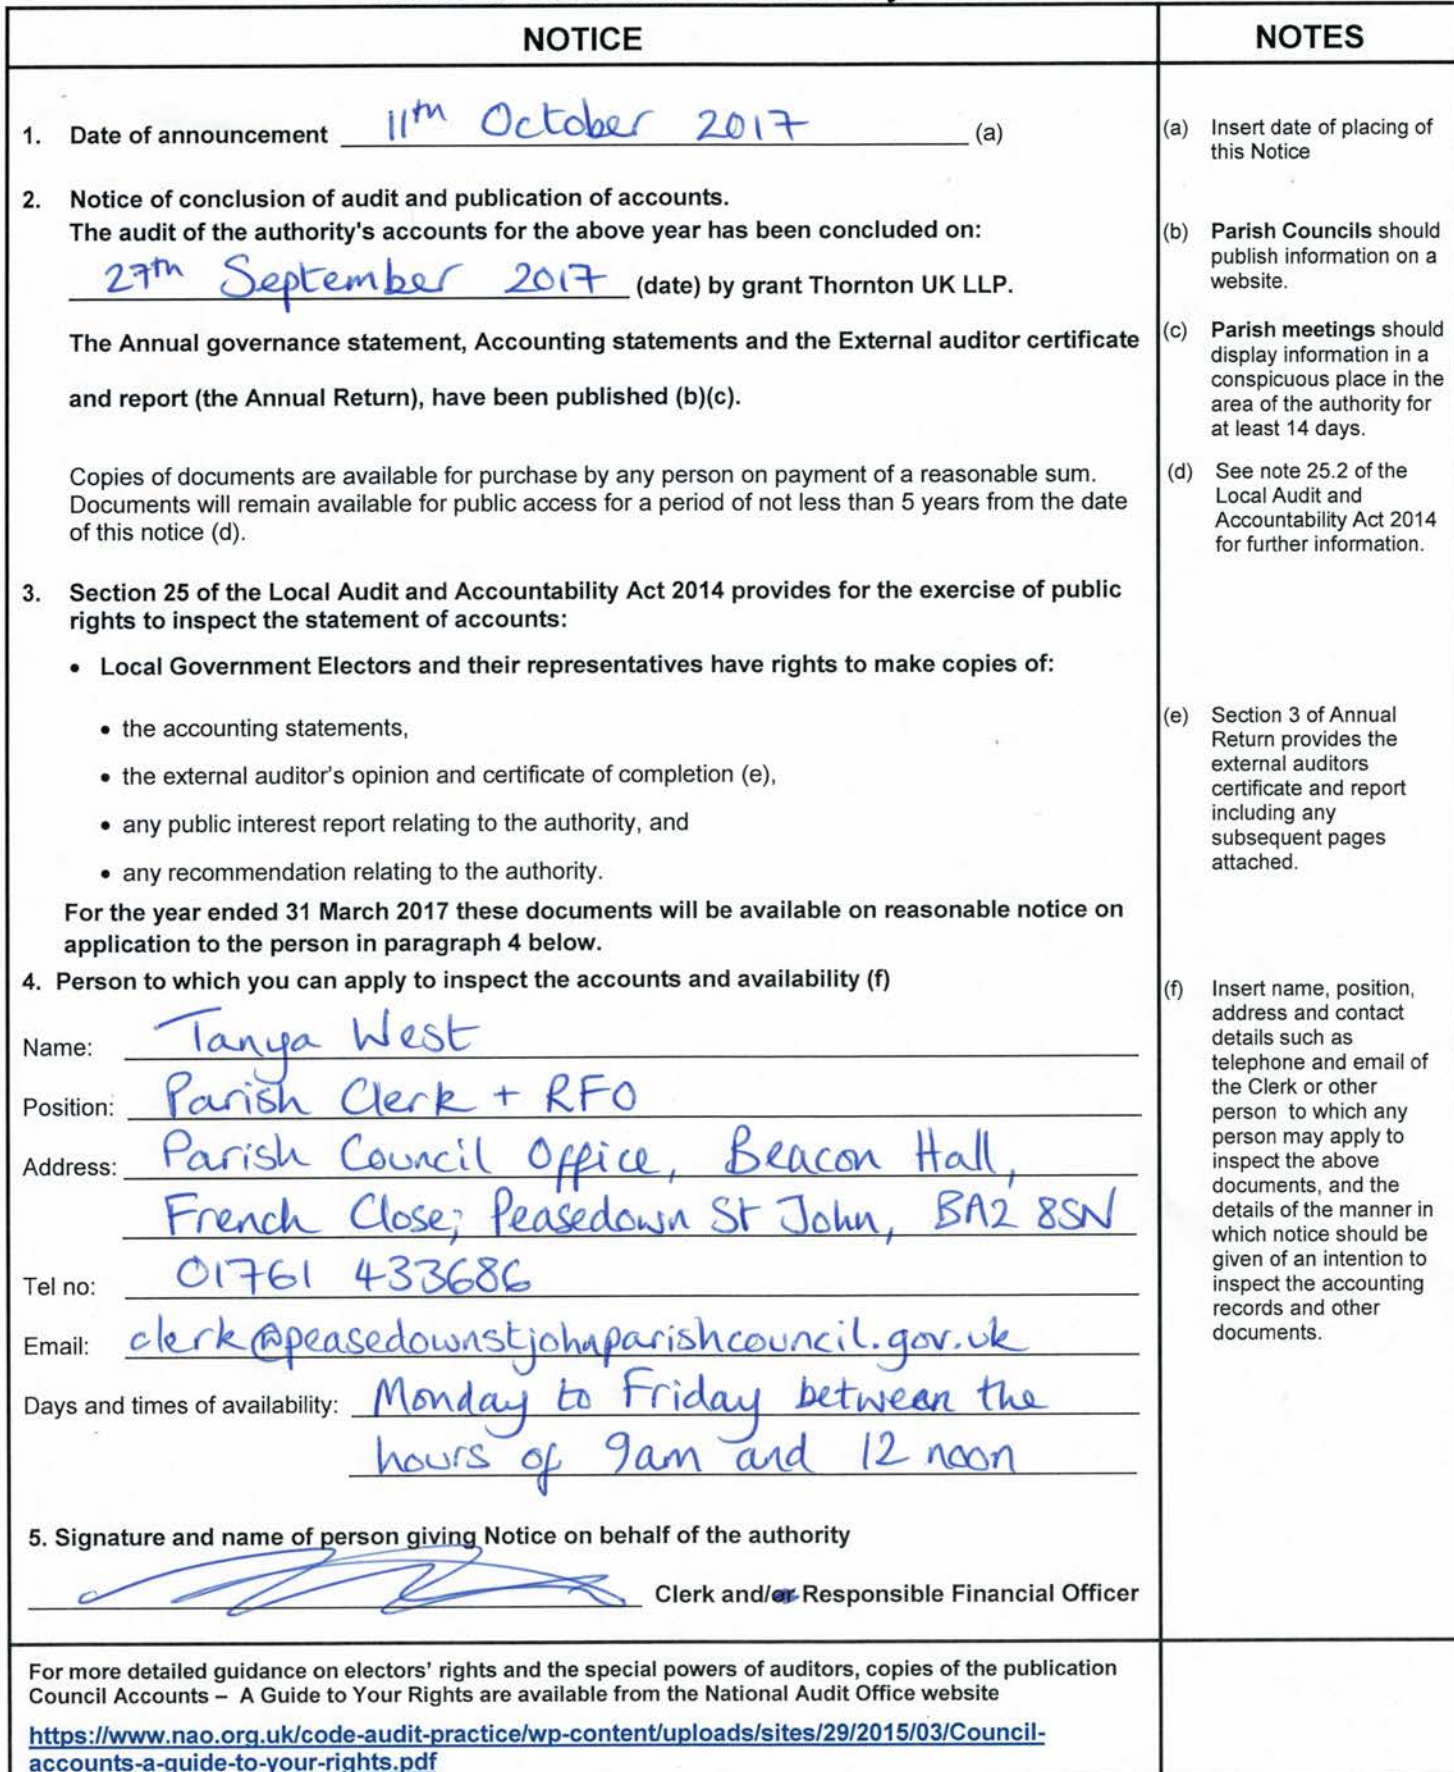 NOTICE
NOTES
1. Date of announcement 11th October 2017 (a)
2. Notice of conclusion of audit and publication of accounts.
The audit of the authority's accounts for the above year has been concluded on:
27th September 2017 (date) by grant Thornton UK LLP.
The Annual governance statement, Accounting statements and the External auditor certificate
and report (the Annual Return), have been published (b)(c).
Copies of documents are available for purchase by any person on payment of a reasonable sum.
Documents will remain available for public access for a period of not less than 5 years from the date
of this notice (d).
3. Section 25 of the Local Audit and Accountability Act 2014 provides for the exercise of public
rights to inspect the statement of accounts:
• Local Government Electors and their representatives have rights to make copies of:
• the accounting statements,
• the external auditor's opinion and certificate of completion (e),
• any public interest report relating to the authority, and
• any recommendation relating to the authority.
For the year ended 31 March 2017 these documents will be available on reasonable notice on
application to the person in paragraph 4 below.
4. Person to which you can apply to inspect the accounts and availability (f)
Name: Tanya West
Position: Parish Clerk + RFO
Address: Parish Council Office, Beacon Hall,
French Close, Peasedown St John, BA2 8SN
Tel no: 01761 433686
Email: clerk@peasedownstjohnparishcouncil.gov.uk
Days and times of availability: Monday to Friday between the
hours of 9am and 12 noon
5. Signature and name of person giving Notice on behalf of the authority
Clerk and/or Responsible Financial Officer
For more detailed guidance on electors' rights and the special powers of auditors, copies of the publication
Council Accounts – A Guide to Your Rights are available from the National Audit Office website
https://www.nao.org.uk/code-audit-practice/wp-content/uploads/sites/29/2015/03/Council-
accounts-a-guide-to-your-rights.pdf
(a) Insert date of placing of
this Notice
(b) Parish Councils should
publish information on a
website.
(c) Parish meetings should
display information in a
conspicuous place in the
area of the authority for
at least 14 days.
(d) See note 25.2 of the
Local Audit and
Accountability Act 2014
for further information.
(e) Section 3 of Annual
Return provides the
external auditors
certificate and report
including any
subsequent pages
attached.
(f) Insert name, position,
address and contact
details such as
telephone and email of
the Clerk or other
person to which any
person may apply to
inspect the above
documents, and the
details of the manner in
which notice should be
given of an intention to
inspect the accounting
records and other
documents.